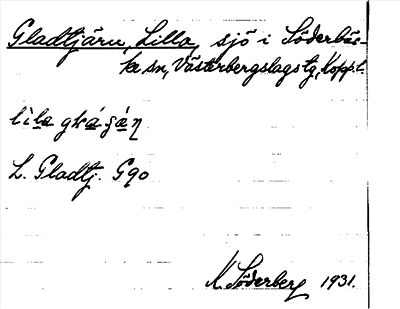 Gladtjärn, Lilla, sjö i Söderbär-
ke sn, Västerbergslags tg, Kopp. l.
lìla gká̱gá̱ŋ
L. Gladtj. G90
K Söderberg 1931.